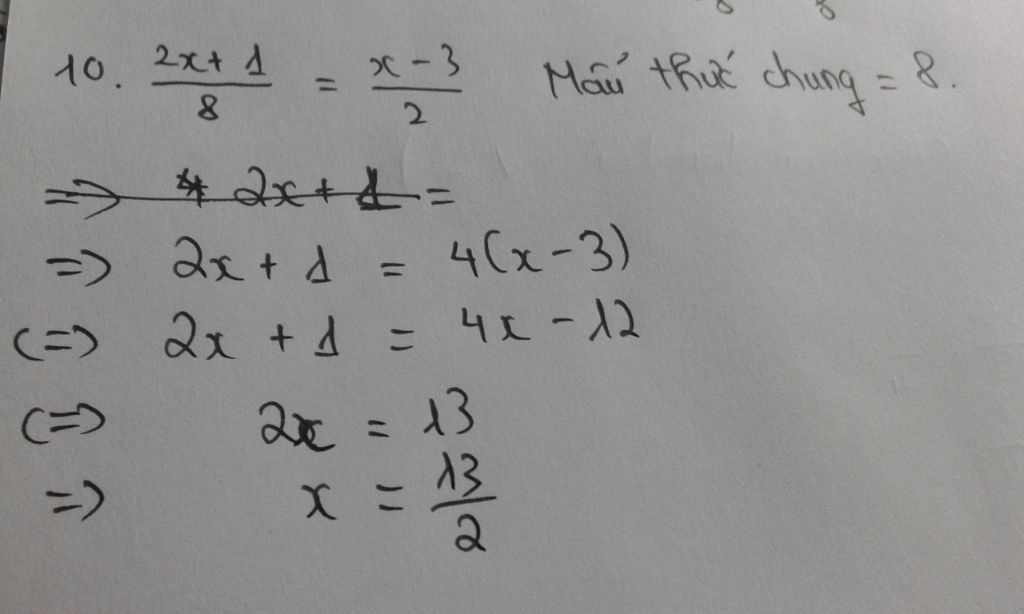 10. (2x + 1)/8 = (x - 3)/2 Mẫu thức chung = 8.
=> 4 2x + 1 =
=> 2x + 1 = 4(x - 3)
<=> 2x + 1 = 4x - 12
<=> 2x = 13
=> x = 13/2